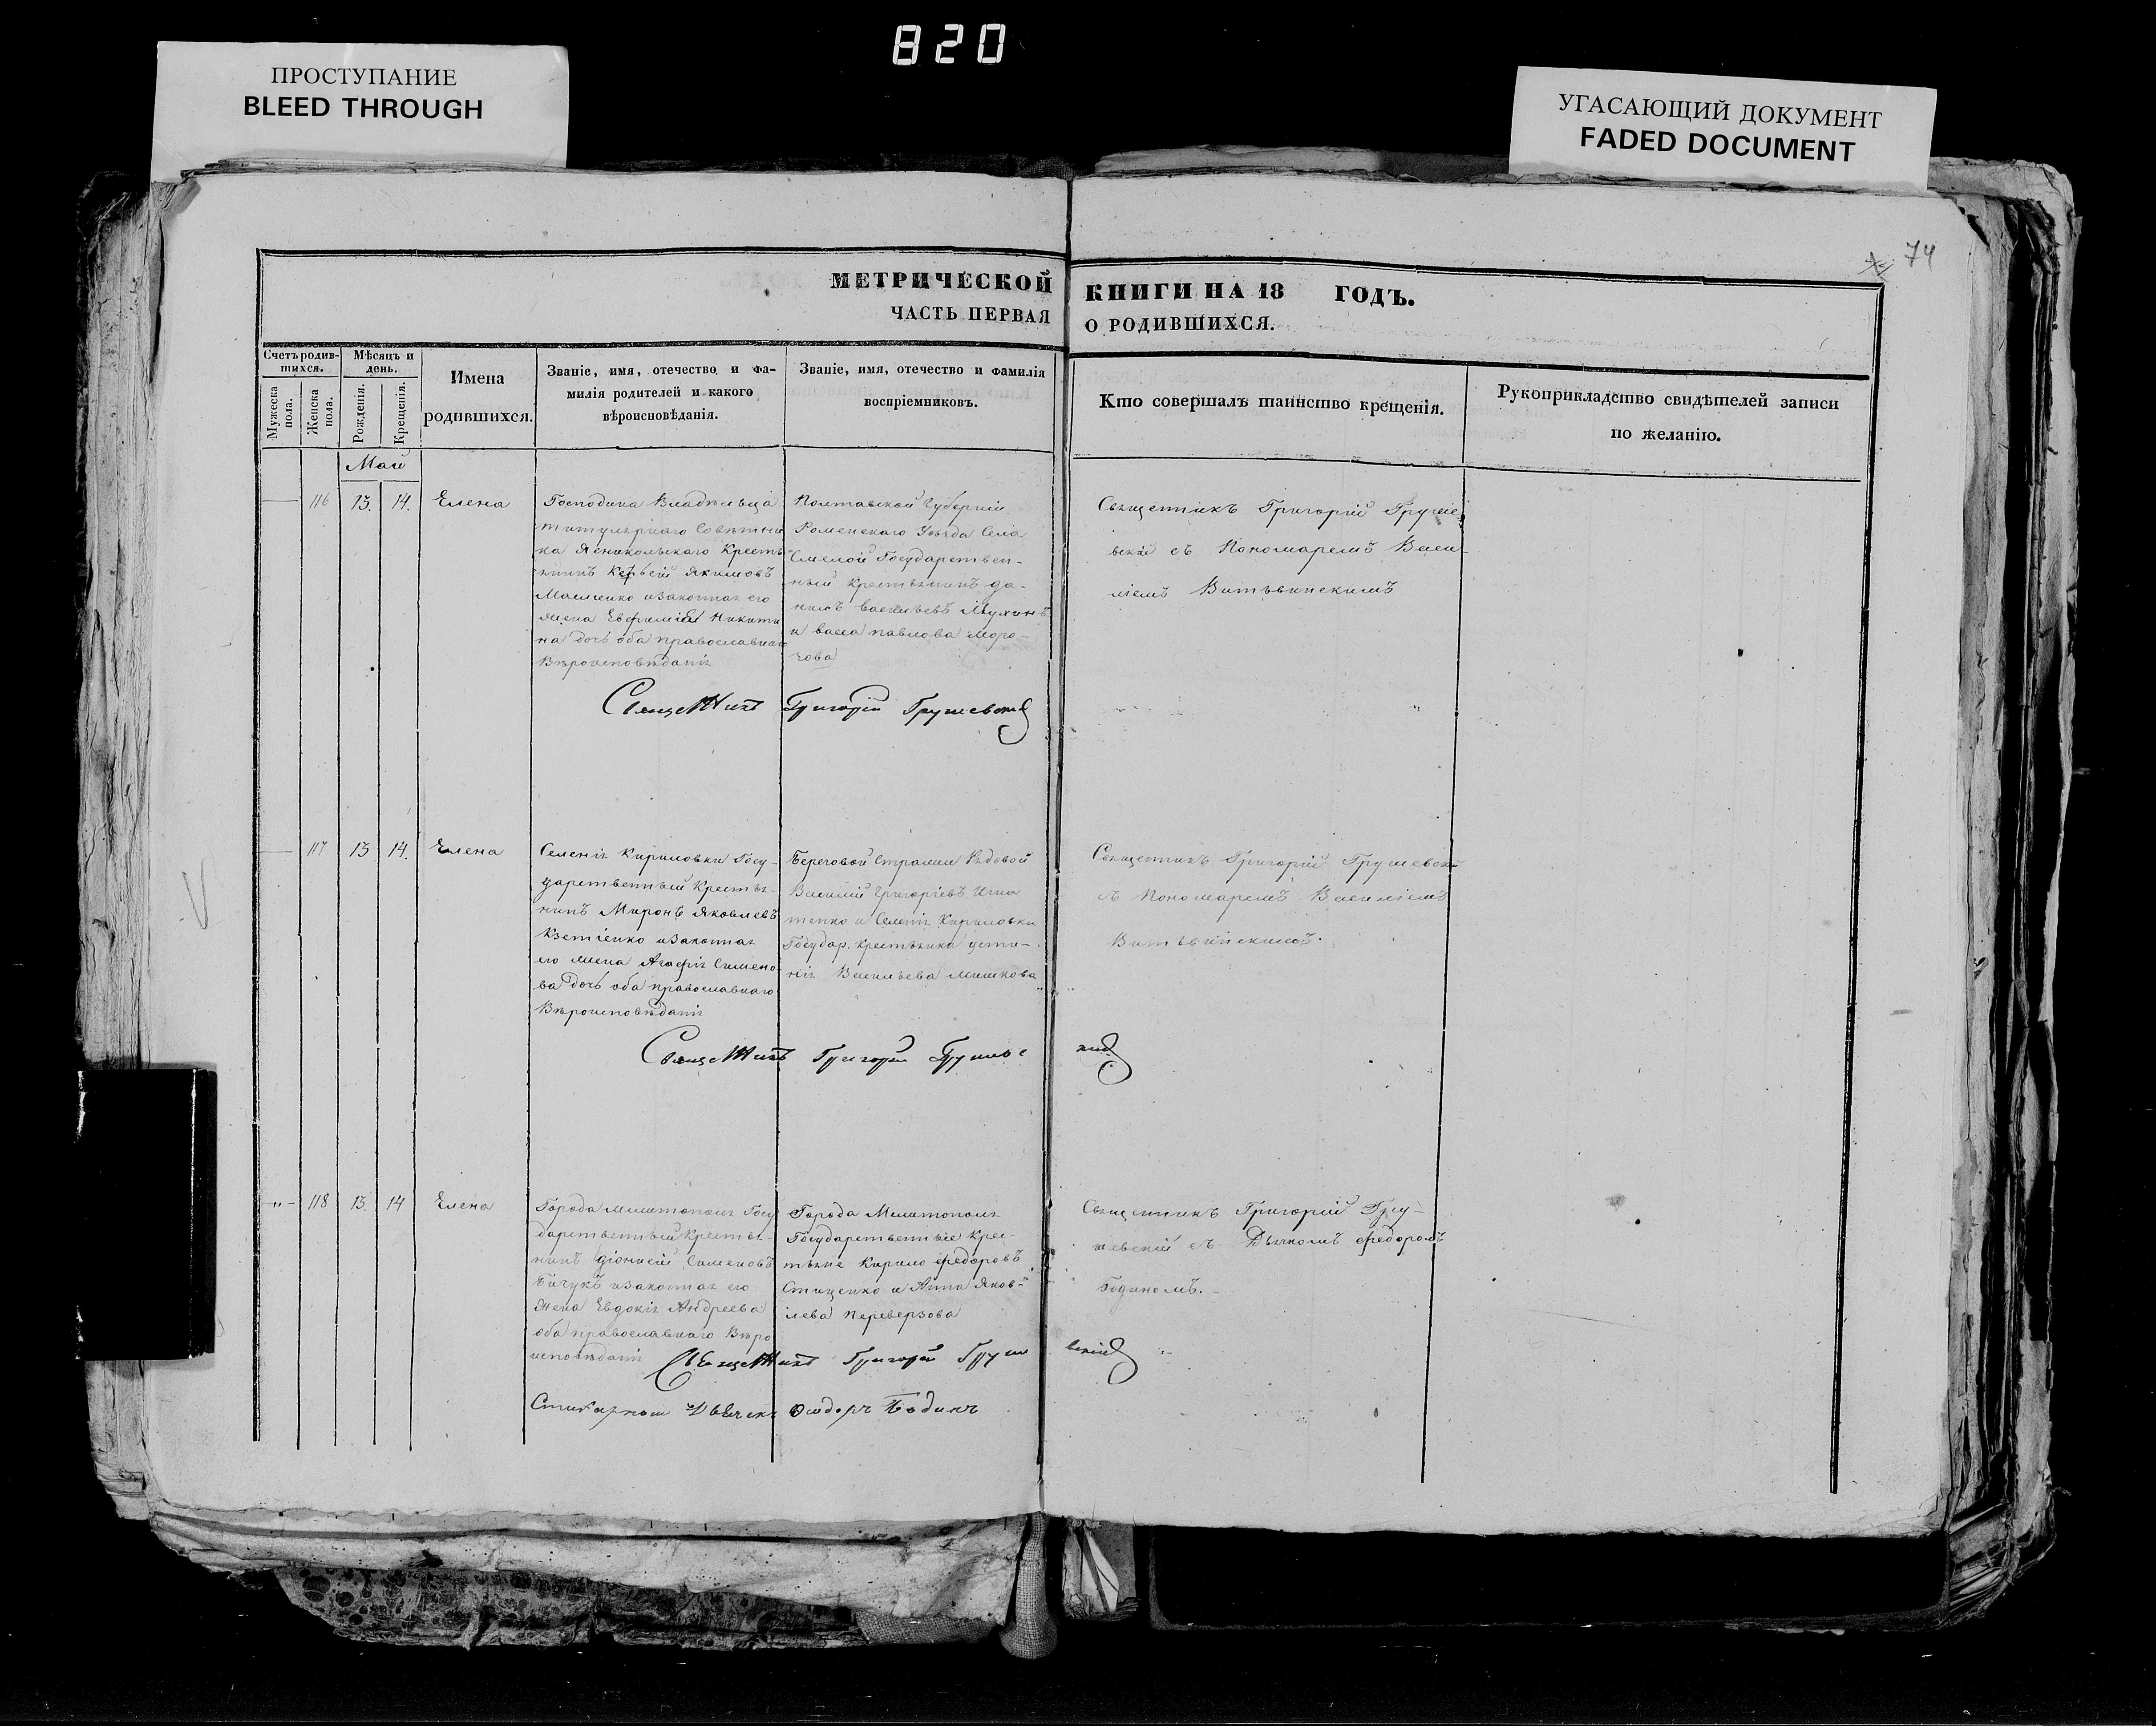 820
ПРОСТУПАНИЕ
BLEED THROUGH
УГАСАЮЩИЙ ДОКУМЕНТ
FADED DOCUMENT
74
МЕТРИЧЕСКОЙ КНИГИ НА 18 ГОДЪ.
ЧАСТЬ ПЕРВАЯ О РОДИВШИХСЯ.
Счетъ родив-
шихся.
Мужеска
пола.
Женска
пола.
Мѣсяцъ и
день.
Рожденія.
Крещенія.
Имена
родившихся.
Званіе, имя, отечество и фа-
милія родителей и какого
вѣроисповѣданія.
Званіе, имя, отечество и фамилія
воспріемниковъ.
Кто совершалъ таинство крещенія.
Рукоприкладство свидѣтелей записи
по желанію.
Май
116
13.
14.
Елена
Господина Владѣльца
титулярнаго Совѣтни
ка Крестья
нинъ Якимовъ
и законная его
жена Никити
на дочь оба православнаго
Вѣроисповѣданія
Полтавской Губерніи
Роменскаго Уѣзда Села
Смелой Государствен-
ный крестьянинъ Да-
нилъ Васильевъ
и Павлова Моро-
зова
Священникъ Григорій Груше
вскій съ Пономаремъ Васи
ліемъ
Священникъ Григорій Грушевскій
117
13
14.
Елена
Селенія Кириловки Госу-
дарственный Крестья-
нинъ Миронъ Яковлевъ
и законная
его жена Агафія Симено
ва дочь оба православнаго
Вѣроисповѣданія
Береговой Стражи Рядовой
Василій Григоріевъ Игна
тенко и Селенія Кириловки
Государ. крестьянка Усти-
нія Васильева Мешкова
Священникъ Григорій Грушевскій
съ Пономаремъ Василіемъ
Священникъ Григорій Грушевскій
118
13.
14
Елена
Города Мелитополя Госу
дарственный Крестья-
нинъ Діонисій Сименовъ
Бичукъ и законная его
жена Евдокія Андреева
оба православнаго Вѣро
исповѣданія
Города Мелитополя
Государственные Крес-
тьяне Кирило Федоровъ
и Анна Яков-
лева Переверзова
Священникъ Григорій Гру-
шевскій съ Дьячкомъ Федоромъ
Бодиномъ.
Священникъ Григорій Грушевскій
Стихарный Дьячекъ Ѳеодоръ Бодинъ